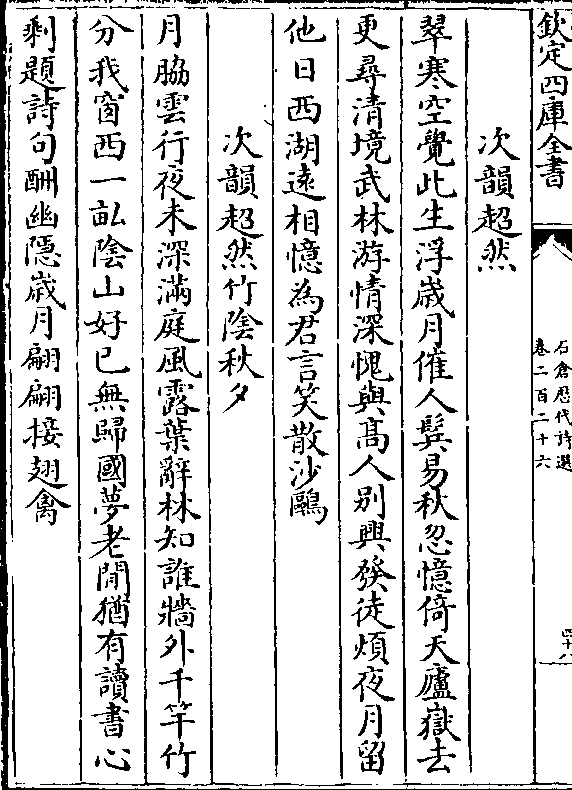 欽定四庫全書
石倉歴代詩選
卷二百二十六
四十八
次韻超然
翠寒空覺此生浮歳月催人鬂易秋忽憶倚天廬嶽去
更尋清境武林游情深愧與髙人别興發徒煩夜月留
他日西湖遠相憶為君言笑散沙鷗
次韻超然竹陰秋夕
月脇雲行夜未深滿庭風露葉辭林知誰牆外千竿竹
分我窗西一畝陰山好已無歸國夢老閒猶有讀書心
剩題詩句酬幽隱歳月翩翩接翅禽